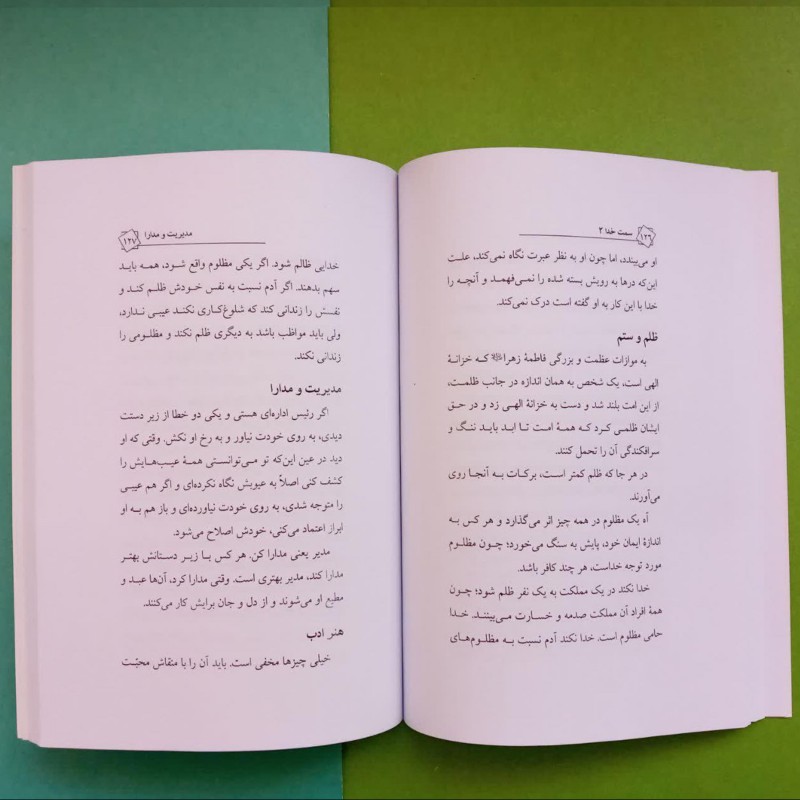 ۱۲۶ سمت خدا ۲
او می‌بیند، اما چون او به نظر عبرت نگاه نمی‌کند، علت
این‌که درها به رویش بسته شده را نمی‌فهمد و آنچه را
خدا با این کار به او گفته است درک نمی‌کند.
ظلم و ستم
به موازات عظمت و بزرگی فاطمهٔ زهرا که خزانهٔ
الهی است، یک شخص به همان اندازه در جانب ظلمت،
از این امت بلند شد و دست به خزانهٔ الهی زد و در حق
ایشان ظلمی کرد که همهٔ امت تا ابد باید ننگ و
سرافکندگی آن را تحمل کنند.
در هر جا که ظلم کمتر است، برکات به آنجا روی
می‌آورند.
آه یک مظلوم در همه چیز اثر می‌گذارد و هر کس به
اندازهٔ ایمان خود، پایش به سنگ می‌خورد؛ چون مظلوم
مورد توجه خداست، هر چند کافر باشد.
خدا نکند در یک مملکت به یک نفر ظلم شود؛ چون
همهٔ افراد آن مملکت صدمه و خسارت می‌بینند. خدا
حامی مظلوم است. خدا نکند آدم نسبت به مظلوم‌های
مدیریت و مدارا ۱۲۷
خدایی ظالم شود. اگر یکی مظلوم واقع شود، همه باید
سهم بدهند. اگر آدم نسبت به نفس خودش ظلم کند و
نفسش را زندانی کند که شلوغ‌کاری نکند عیبی ندارد،
ولی باید مواظب باشد به دیگری ظلم نکند و مظلومی را
زندانی نکند.
مدیریت و مدارا
اگر رئیس اداره‌ای هستی و یکی دو خطا از زیر دستت
دیدی، به روی خودت نیاور و به رخ او نکش. وقتی که او
دید در عین این‌که تو می‌توانستی همهٔ عیب‌هایش را
کشف کنی اصلاً به عیوبش نگاه نکرده‌ای و اگر هم عیبی
را متوجه شدی، به روی خودت نیاورده‌ای و باز هم به او
ابراز اعتماد می‌کنی، خودش اصلاح می‌شود.
مدیر یعنی مدارا کن. هر کس با زیر دستانش بهتر
مدارا کند، مدیر بهتری است. وقتی مدارا کرد، آن‌ها عبد و
مطیع او می‌شوند و از دل و جان برایش کار می‌کنند.
هنر ادب
خیلی چیزها مخفی است. باید آن را با منقاش محبّت